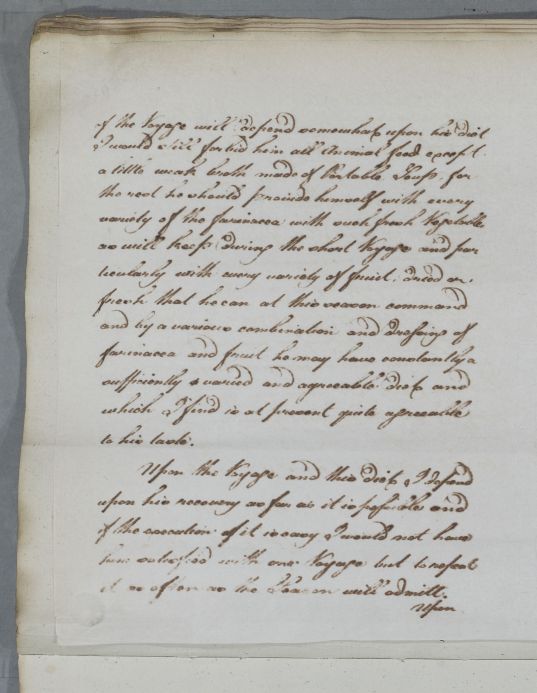 of the Voyage will depend somewhat upon his diet
I would still forbid him all Animal food except
a little weak broth made of Portable Soup. for
the rest he should provide himself with every
variety of the farinacea with such fresh Vegetable
as will keep during the short Voyage and par
ticularly with every variety of fruit, dried or
fresh that he can at this season command
and by a various combination and dressing of
farinacea and fruit he may have constantly a
sufficiently varied and agreeable diet and
which I find is at present quite agreeable
to his taste.
Upon the Voyage and this diet I depend
upon his recovery as far as it is possible and
if the execution of it is easy I would not have
him satisfied with one Voyage but to repeat
it as often as the Season will admitt.
Upon